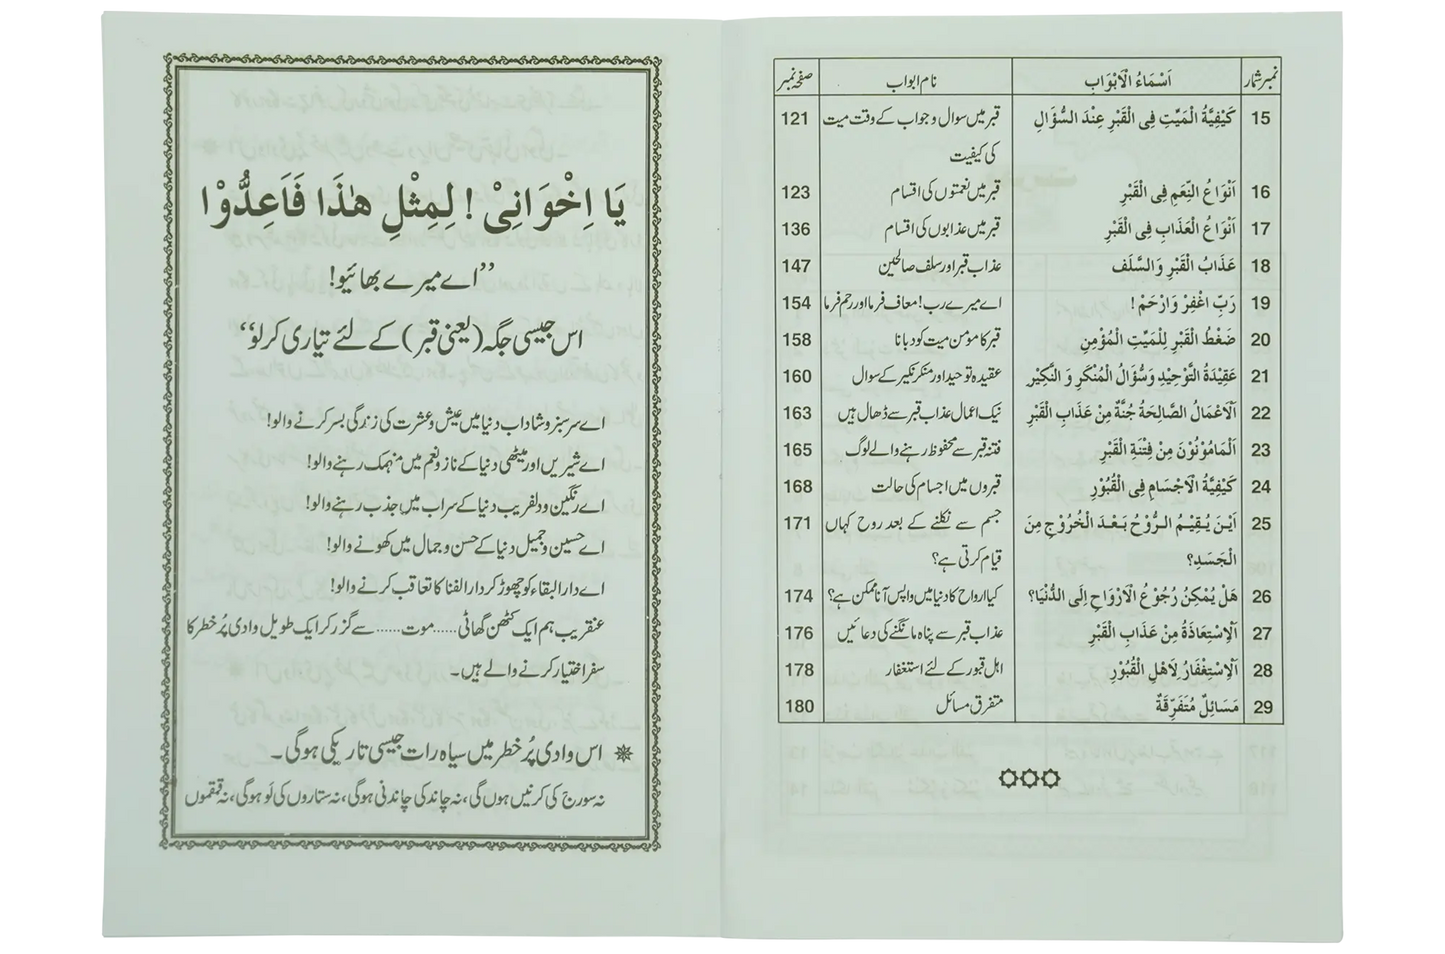 نمبر شمار اَسْمَاءُ الْاَبْوَاب نام ابواب صفحہ نمبر
15 كَيْفِيَّةُ الْمَيِّتِ فِى الْقَبْرِ عِنْدَ السُّؤَالِ قبر میں سوال و جواب کے وقت میت 121
کی کیفیت
16 اَنْوَاعُ النِّعَمِ فِى الْقَبْرِ قبر میں نعمتوں کی اقسام 123
17 اَنْوَاعُ الْعَذَابِ فِى الْقَبْرِ قبر میں عذابوں کی اقسام 136
18 عَذَابُ الْقَبْرِ وَالسَّلَف عذاب قبر اور سلف صالحین 147
19 رَبِّ اغْفِرْ وَارْحَمْ ! اے میرے رب! معاف فرما اور رحم فرما 154
20 ضَغْطُ الْقَبْرِ لِلْمَيِّتِ الْمُؤْمِنِ قبر کا مومن میت کو دبانا 158
21 عَقِيْدَةُ التَّوْحِيْدِ وَسُؤَالُ الْمُنْكَرِ وَ النَّكِيْرِ عقیدہ توحید اور منکر نکیر کے سوال 160
22 اَلْاَعْمَالُ الصَّالِحَةُ جُنَّةٌ مِنْ عَذَابِ الْقَبْرِ نیک اعمال عذاب قبر سے ڈھال ہیں 163
23 اَلْمَامُوْنُوْنَ مِنْ فِتْنَةِ الْقَبْرِ فتنہ قبر سے محفوظ رہنے والے لوگ 165
24 كَيْفِيَّةُ الْاَجْسَامِ فِى الْقُبُوْرِ قبروں میں اجسام کی حالت 168
25 اَيْنَ يُقِيْمُ الرُّوْحُ بَعْدَ الْخُرُوْجِ مِنَ جسم سے نکلنے کے بعد روح کہاں 171
الْجَسَدِ؟ قیام کرتی ہے؟
26 هَلْ يُمْكِنُ رُجُوْعُ الْاَرْوَاحِ اِلَى الدُّنْيَا؟ کیا ارواح کا دنیا میں واپس آنا ممکن ہے؟ 174
27 اَلْاِسْتِعَاذَةُ مِنْ عَذَابِ الْقَبْرِ عذاب قبر سے پناہ مانگنے کی دعائیں 176
28 اَلْاِسْتِغْفَارُ لِاَهْلِ الْقُبُوْرِ اہل قبور کے لئے استغفار 178
29 مَسَائِلٌ مُتَفَرِّقَةٌ متفرق مسائل 180
يَا اِخْوَانِىْ ! لِمِثْلِ هٰذَا فَاَعِدُّوْا
”اے میرے بھائیو!
اس جیسی جگہ (یعنی قبر) کے لئے تیاری کر لو“
اے سرسبز و شاداب دنیا میں عیش و عشرت کی زندگی بسر کرنے والو!
اے شیریں اور میٹھی دنیا کے ناز و نعم میں منہمک رہنے والو!
اے رنگین و دلفریب دنیا کے سراب میں جذب رہنے والو!
اے حسین و جمیل دنیا کے حسن و جمال میں کھونے والو!
اے دار البقاء کو چھوڑ کر دار الفنا کا تعاقب کرنے والو!
عنقریب ہم ایک کٹھن گھاٹی ...... موت ...... سے گزر کر ایک طویل وادی پُر خطر کا
سفر اختیار کرنے والے ہیں۔
اس وادی پُر خطر میں سیاہ رات جیسی تاریکی ہوگی۔
نہ سورج کی کرنیں ہوں گی، نہ چاند کی چاندنی ہوگی، نہ ستاروں کی لَو ہوگی، نہ قمقموں